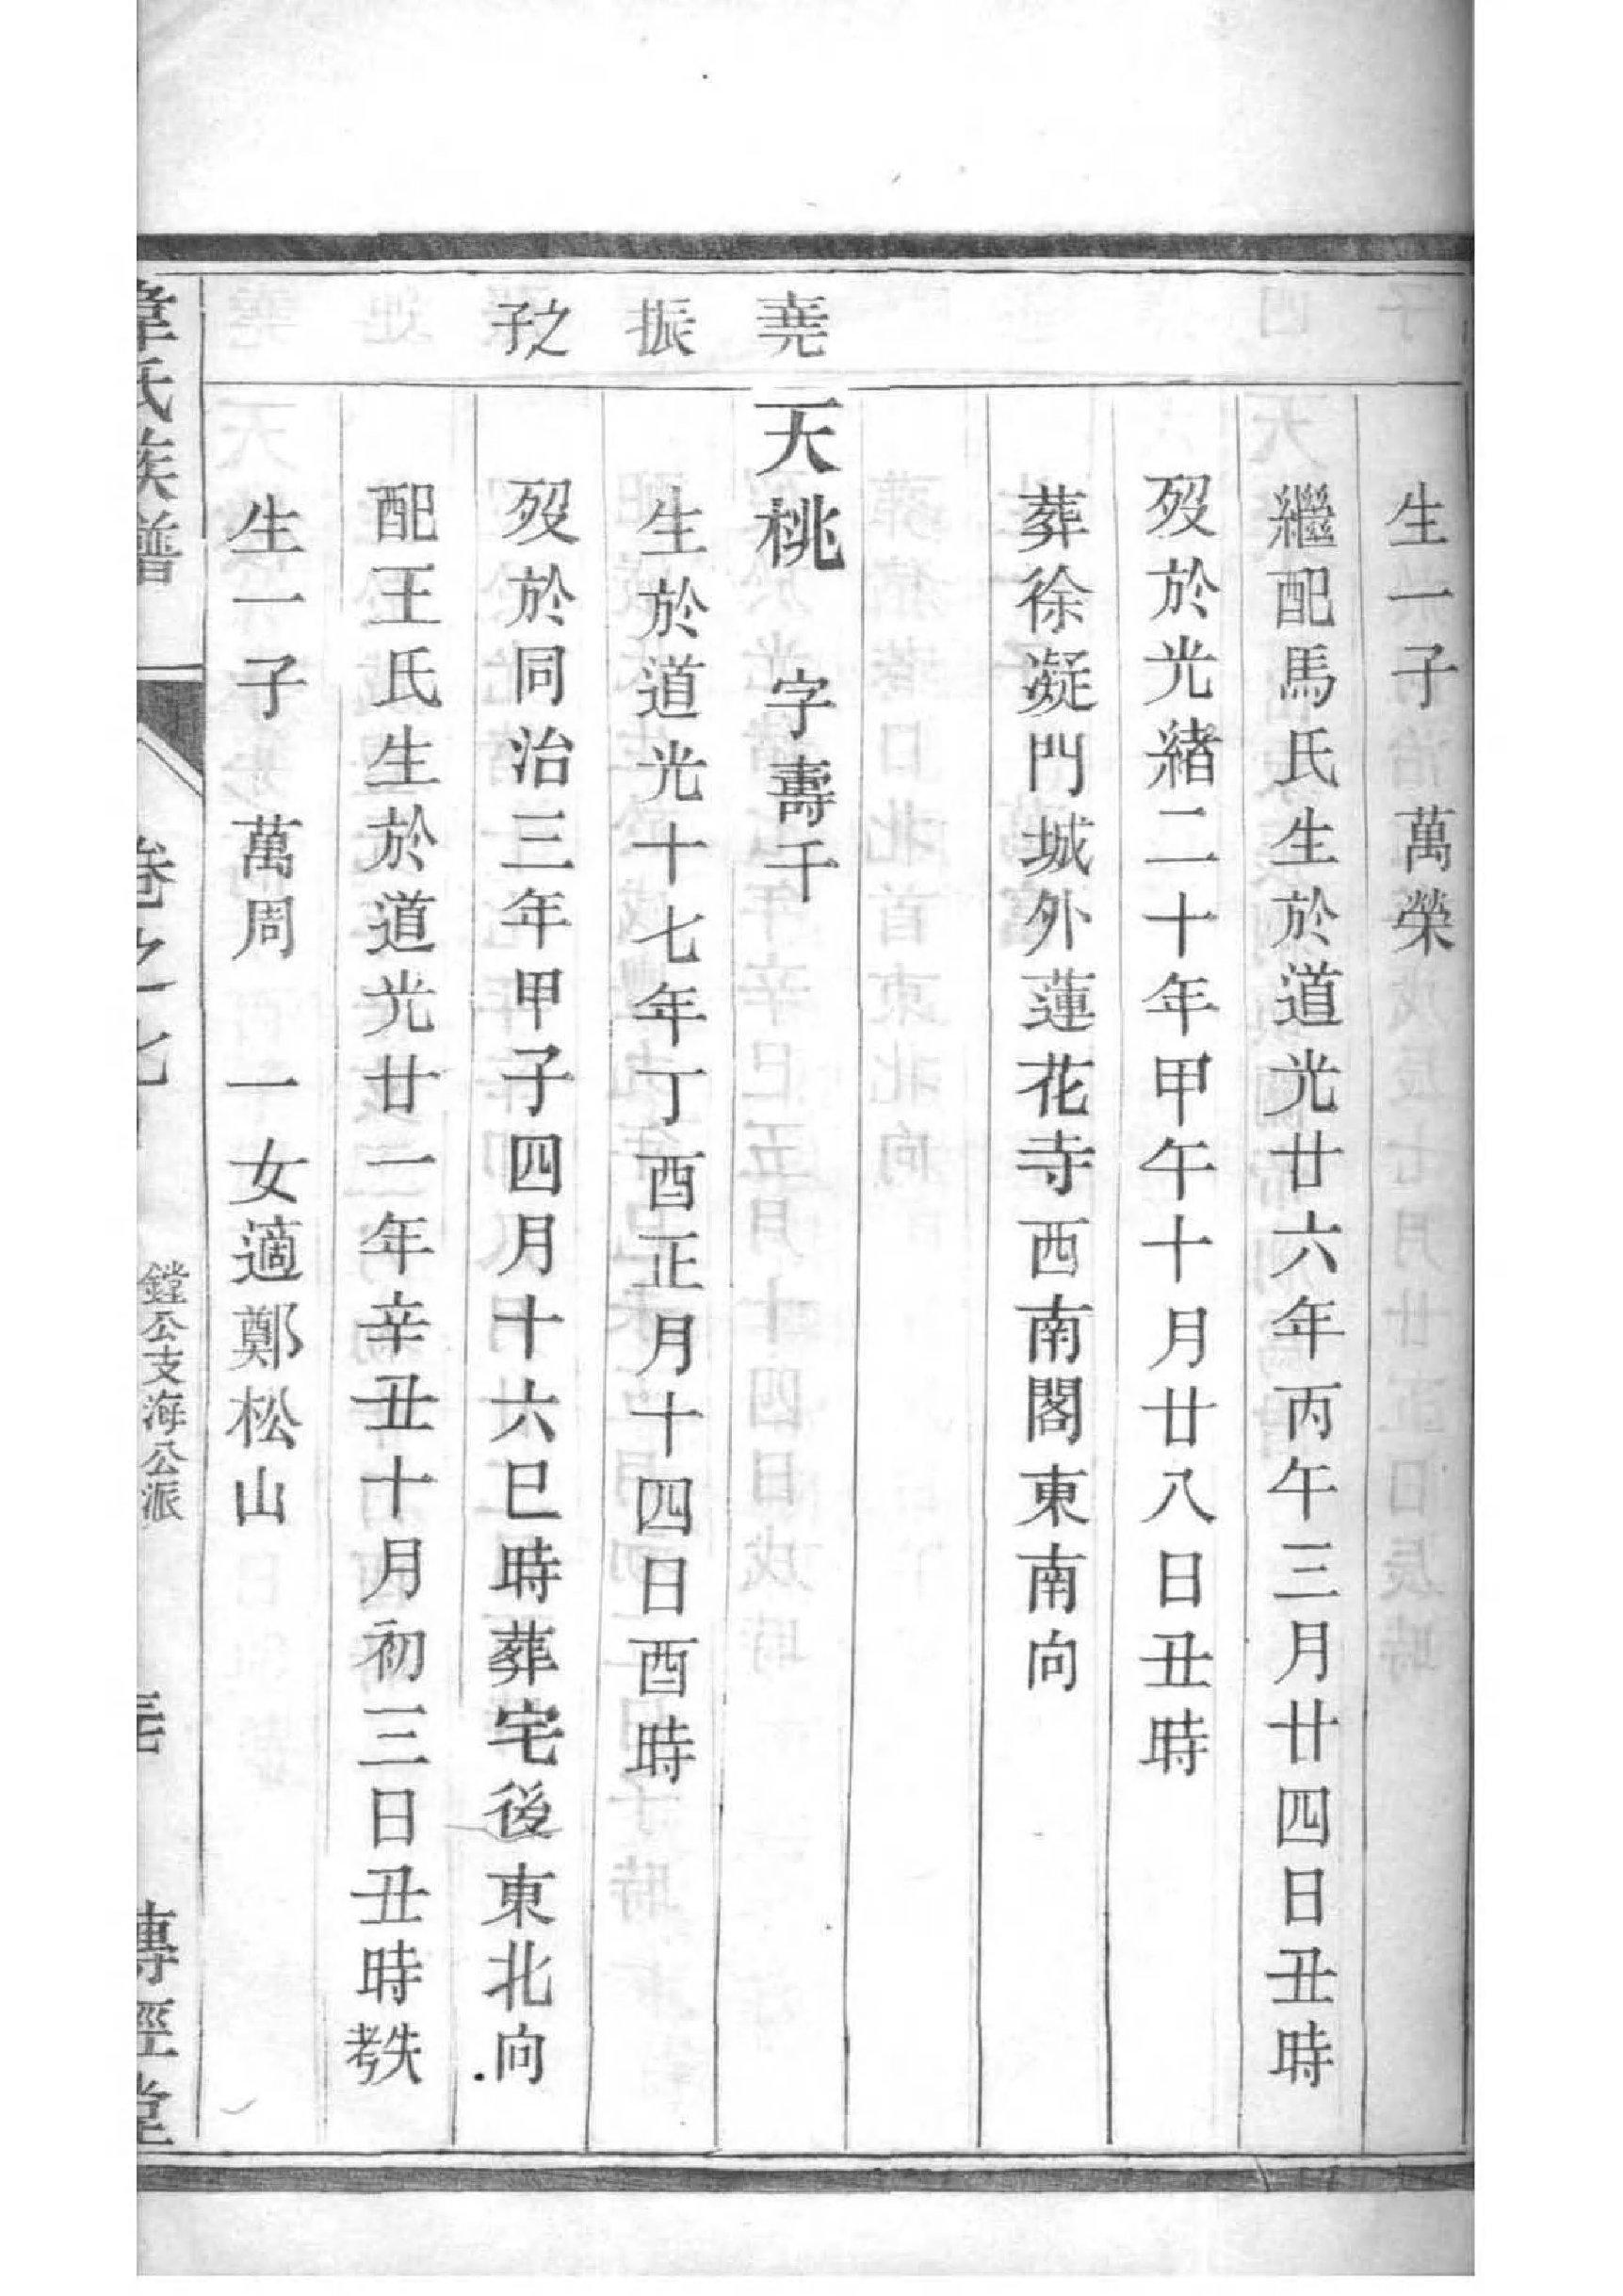 生一子　萬榮
繼配馬氏生於道光廿六年丙午三月廿四日丑時
歿於光緒二十年甲午十月廿八日丑時
葬徐凝門城外蓮花寺西南閣東南向
堯
天桃　字壽千
振
生於道光十七年丁酉正月十四日酉時
之子
歿於同治三年甲子四月十六巳時葬宅後東北向
配王氏生於道光廿一年辛丑十月初三日丑時失考
生一子　萬周　一女適鄭松山
韋氏族譜
卷之十七
鏜公支海公派
傳經堂